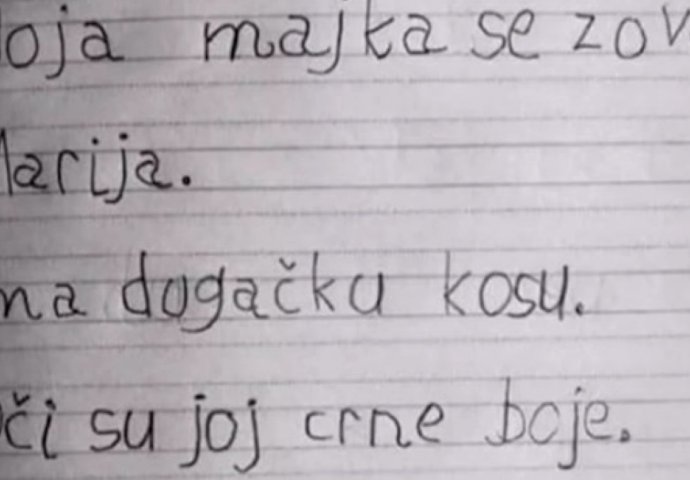 oja majka se zov
arija.
ma dogačku kosu.
či su joj crne boje.